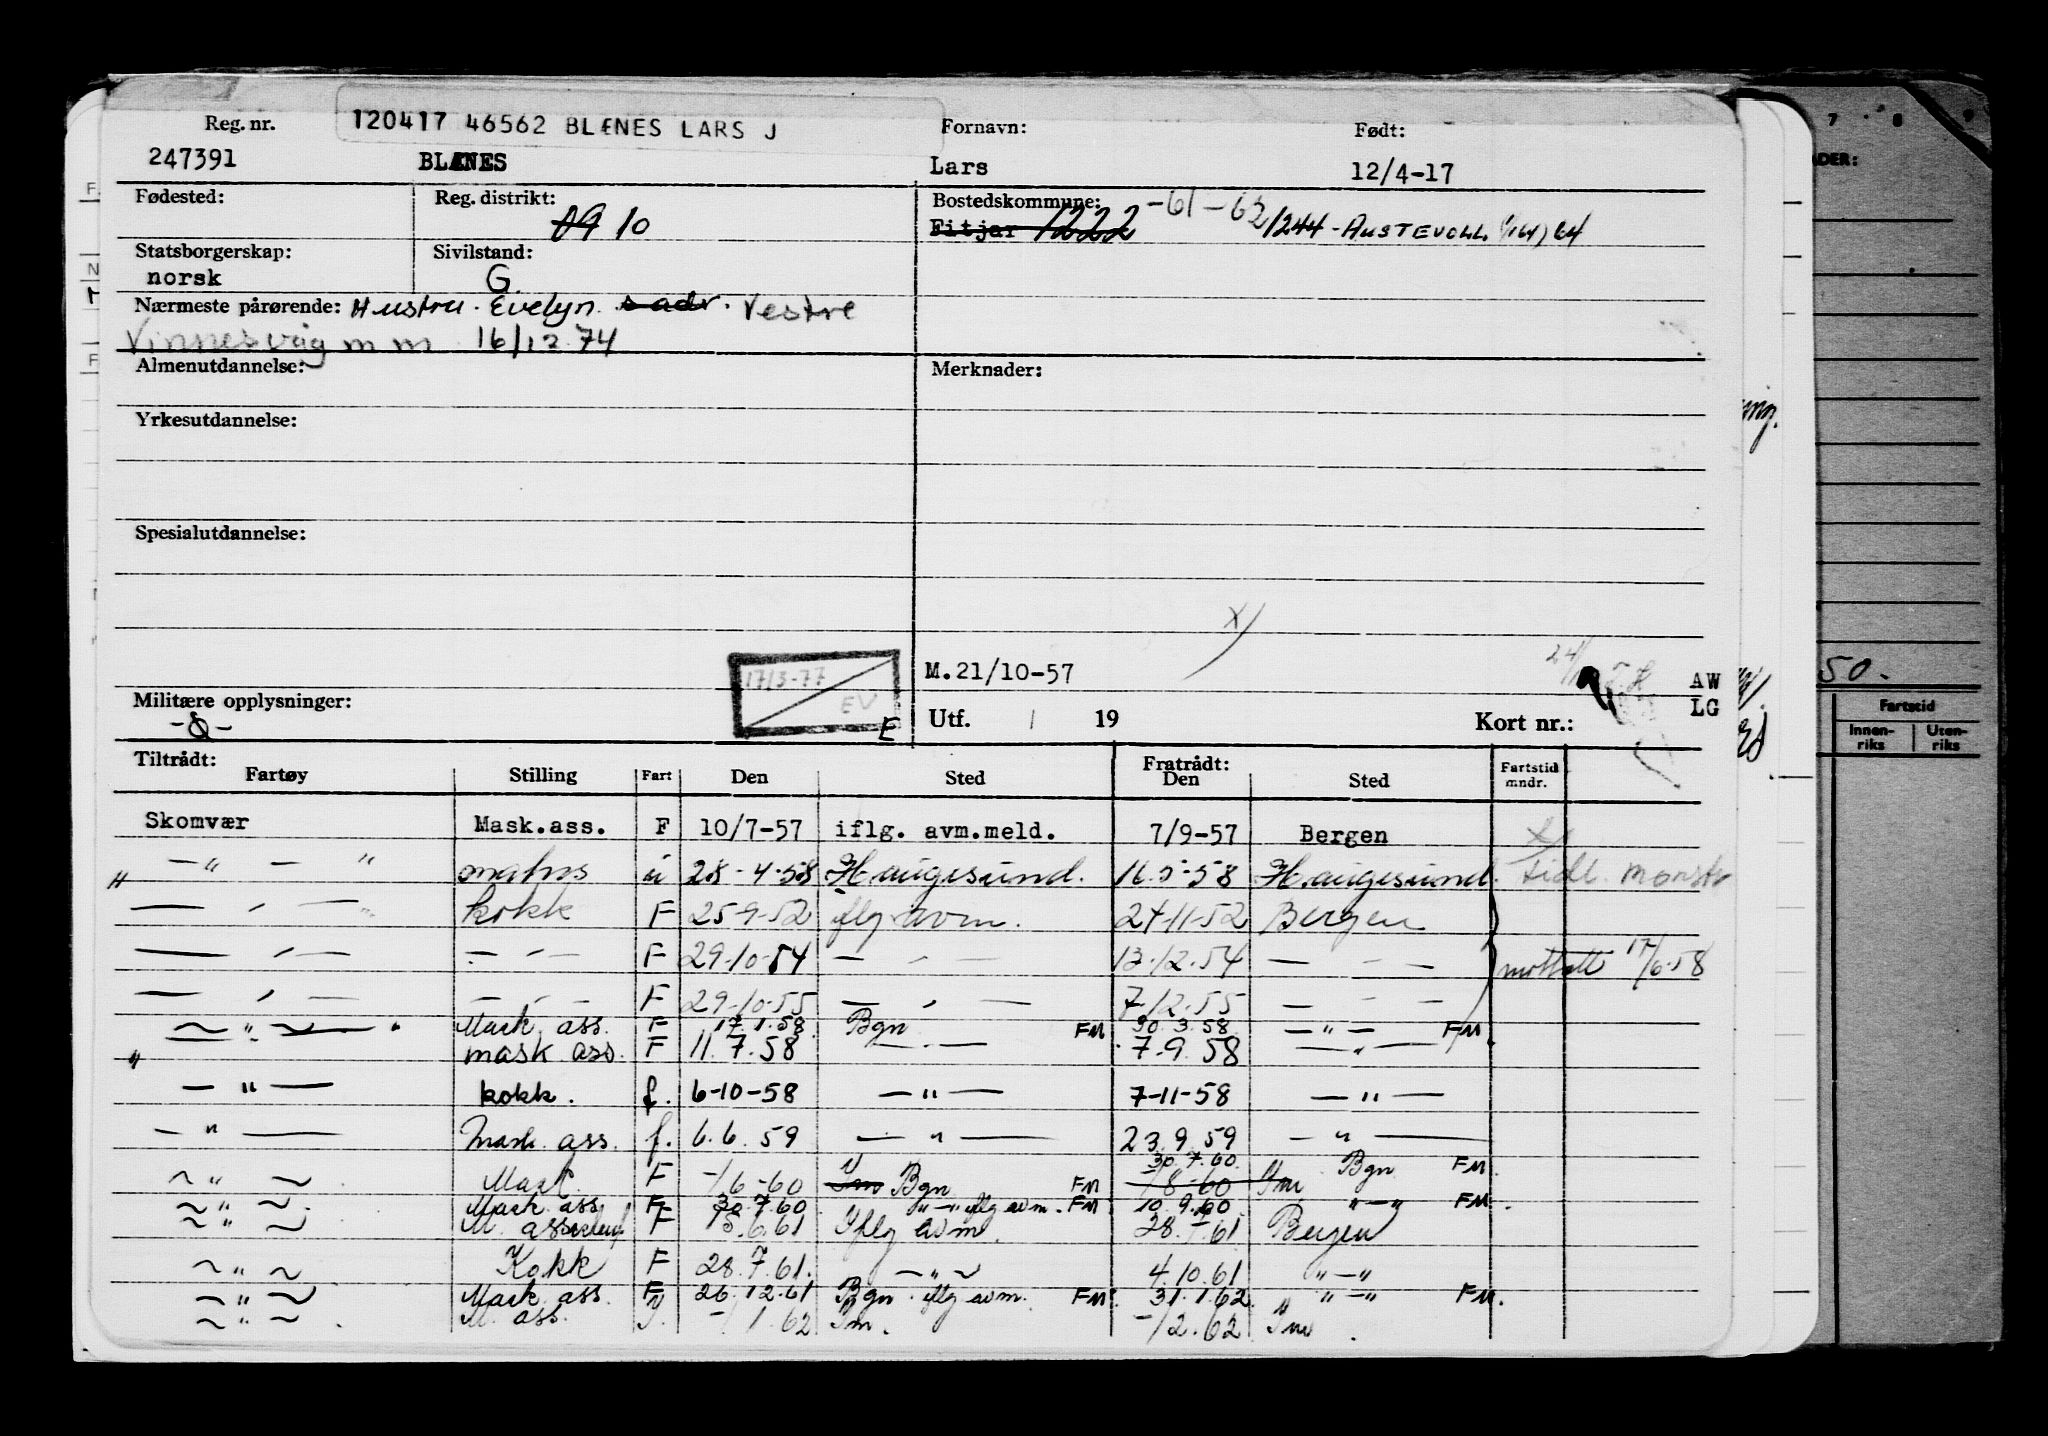 120417 46562 BLÆNES LARS J
Reg. nr. Fornavn: Født:
247391 BLÆNES Lars 12/4-17
Fødested: Reg. distrikt: Bostedskommune: -61-62
09 10 Fitjar 1222 1244-AUSTEVOLL
Statsborgerskap: Sivilstand:
norsk G.
Nærmeste pårørende: Hustru. Evelyn. s adr. Vestre
Vinnesvåg m m 16/12 74
Almenutdannelse: Merknader:
Yrkesutdannelse:
Spesialutdannelse:
x)
17/3-77 EV
M.21/10-57 AW
Militære opplysninger: LG
E Utf. / 19 Kort nr.:
50.
Fartstid
Innen-riks Uten-riks
Tiltrådt: Fratrådt:
Fartøy Stilling Fart Den Sted Den Sted Fartstid mndr.
Skomvær Mask.ass. F 10/7-57 iflg. avm.meld. 7/9-57 Bergen
— " — " matros u 28-4-58 Haugesund. 16-5-58 Haugesund. tidl. mønstr
— " — " kokk F 25-9-52 iflg avm. 24-11-52 Bergen
— " — — " — F 29-10-54 — " — 13.12.54 — " — mottatt 17/6-58
— " — — " — F 29-10-55 — " — 7/12-55 — " —
— " — " Mask. ass. F 17.1.58 Bgn FM 30.3.58 — " — FM
" mask ass. F 11.7.58 — " — 7.9.58 — " —
— " — kokk. f. 6-10-58 — " — 7-11-58 — " —
— " — Mask. ass. f. 6.6.59 — " — 23.9.59 — " —
~ " ~ Mask F -/6-60 Im Bgn FM 30.7.60 -/8-60 Im Bgn FM
~ " ~ Mask ass F 30.7.60 " — " iflg avm. FM 10.9.60 " — " FM.
~ " ~ M. assistent F 15.6.61 Iflg avm. 28.7.61 Bergen
~ " ~ Kokk F 28.7.61. ~ " ~ 4.10.61 " — "
~ " ~ Mask. ass. F. 26.12.61 Bgn. iflg avm. FM. 31.1.62 " — " FM.
~ " ~ M. ass. -/1.62 Im. -/2.62 Im.